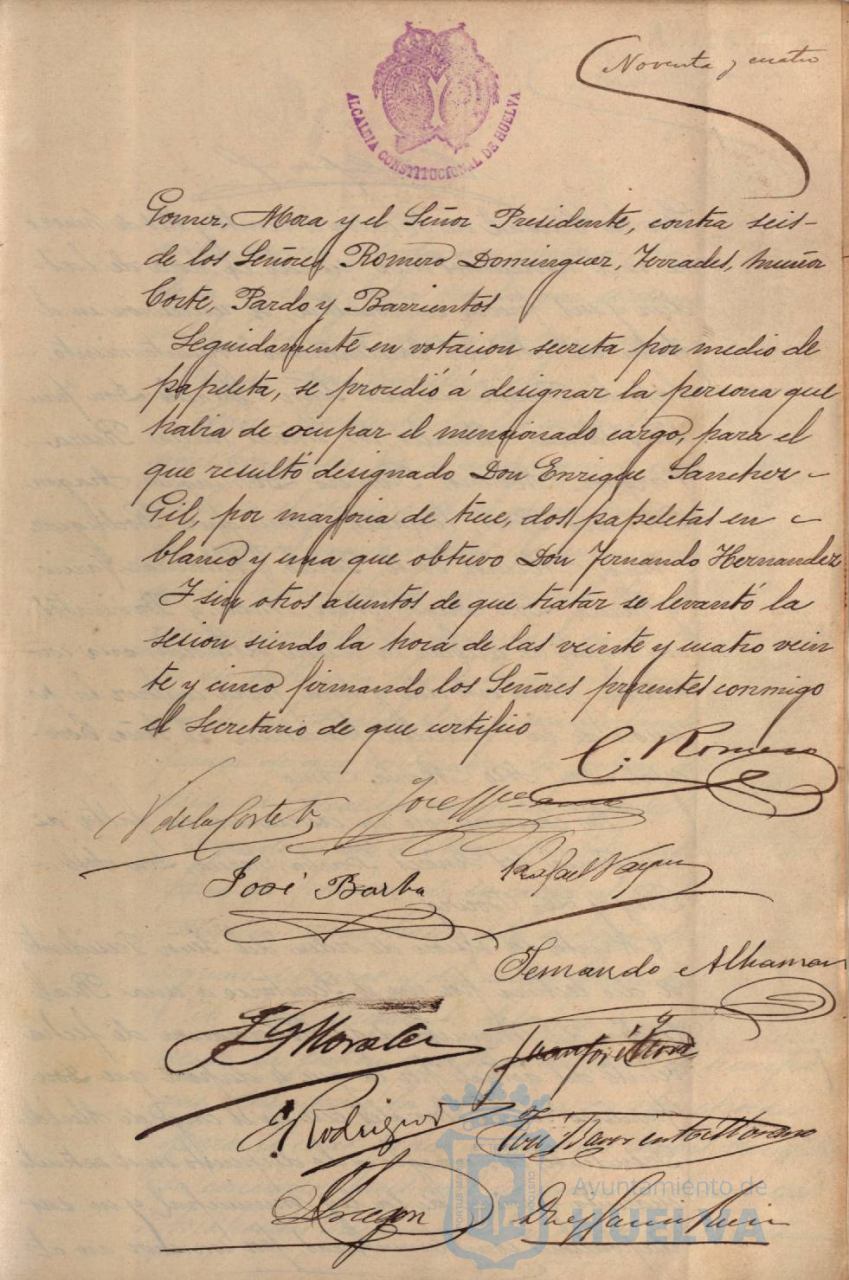 Noventa y cuatro
ALCALDIA CONSTITUCIONAL DE HUELVA
Gomez, Mora y el Señor Presidente, contra seis
de los Señores Romero Dominguez, Terrades, Muñoz
Corte, Pardo y Barrientos
Seguidamente en votacion secreta por medio de
papeleta, se procedió á designar la persona que
habia de ocupar el mencionado cargo, para el
que resultó designado Don Enrique Sanchez
Gil, por mayoria de trece, dos papeletas en
blanco y una que obtuvo Don Fernando Hernandez
Y sin otros asuntos de que tratar se levantó la
sesion siendo la hora de las veinte y cuatro vein
te y cinco firmando los Señores presentes conmigo
el Secretario de que certifico
C. Romero
V de la Corte
José
José Barba
Rafael
Fernando Alhaman
Morales
Juan José Mora
Rodriguez
José Barrientos Moreno
Aragon
Ayuntamiento de
HUELVA